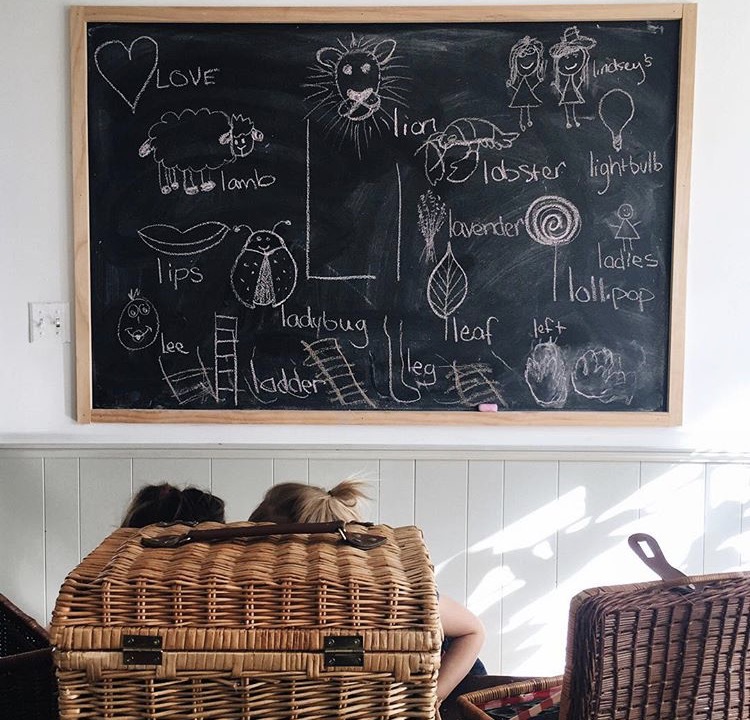 LOVE
lion
lindsey's
lamb
lobster
lightbulb
L l
lavender
lips
ladies
lollipop
ladybug
leaf
left
lee
ladder
leg